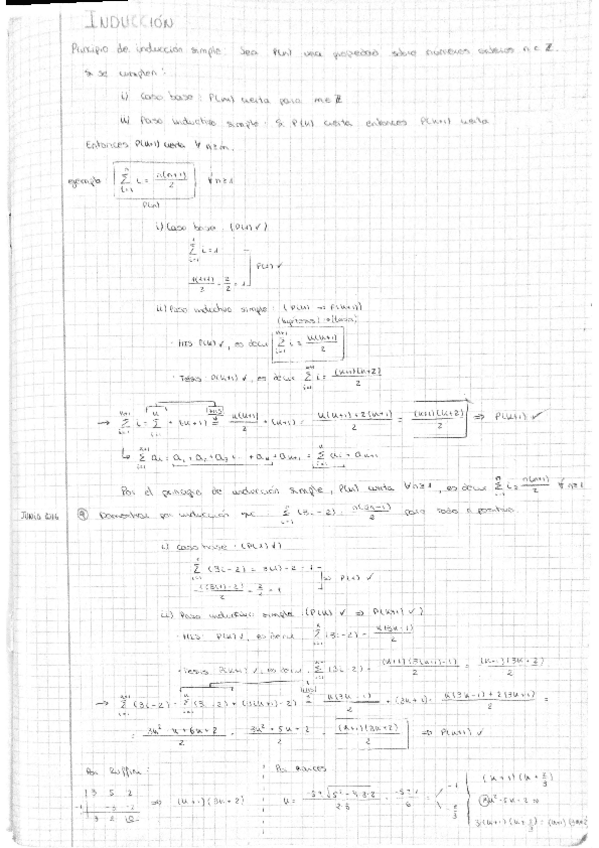 INDUCCIÓN
Principio de inducción simple: Sea P(n) una propiedad sobre números enteros n ∈ ℤ.
Si se cumplen:
i) Caso base: P(m) cierta para m∈ℤ
ii) Paso inductivo simple: Si P(k) cierta entonces P(k+1) cierta
Entonces P(n) cierta ∀ n≥m.
ejemplo: ∑_{i=1}^{n} i = n(n+1)/2 ∀ n≥1
P(n)
i) Caso base: (P(1) ✓)
∑ i = 1
1(1+1)/2 = 2/2 = 1 P(1) ✓
ii) Paso inductivo simple: (P(k) → P(k+1))
(hipótesis) → (tesis)
· HIS P(k) ✓, es decir ∑ i = k(k+1)/2
· Tesis P(k+1) ✓, es decir ∑_{i=1}^{k+1} i = (k+1)(k+2)/2
→ ∑_{i=1}^{k+1} i = ∑_{i=1}^{k} i + (k+1) = k(k+1)/2 + (k+1) = k(k+1)+2(k+1)/2 = (k+1)(k+2)/2 ⇒ P(k+1) ✓
↳ ∑_{i=1}^{k+1} ai = a1 + a2 + a3 + ... + ak + ak+1 = ∑_{i=1}^{k} ai + ak+1
Por el principio de inducción simple, P(n) cierta ∀ n≥1, es decir ∑_{i=1}^{n} i = n(n+1)/2 ∀ n≥1
JUNIO 2016 Demostrar por inducción que: ∑_{i=1}^{n} (3i-2) = n(3n-1)/2 para todo n positivo.
i) Caso base: (P(1) ✓)
∑ (3i-2) = 3(1)-2 = 1
1(3(1)-1)/2 = 2/2 = 1 ⇒ P(1) ✓
ii) Paso inductivo simple: (P(k) ✓ ⇒ P(k+1) ✓)
· HIS: P(k) ✓, es decir ∑ (3i-2) = k(3k-1)/2
· Tesis: P(k+1) ✓, es decir: ∑_{i=1}^{k+1} (3i-2) = (k+1)(3(k+1)-1)/2 = (k+1)(3k+2)/2
→ ∑_{i=1}^{k+1} (3i-2) = ∑_{i=1}^{k} (3i-2) + (3(k+1)-2) = k(3k-1)/2 + (3k+1) = k(3k-1)+2(3k+1)/2 =
= 3k²-k+6k+2/2 = 3k²+5k+2/2 = (k+1)(3k+2)/2 ⇒ P(k+1) ✓
Por Ruffini: Por raíces
3 5 2
-1 -3 -2
3 2 0 ⇒ (k+1)(3k+2)
k = -5±√5²-4·3·2/2·3 = -5±1/6 = -1
-2/3
(k+1)(k+2/3)